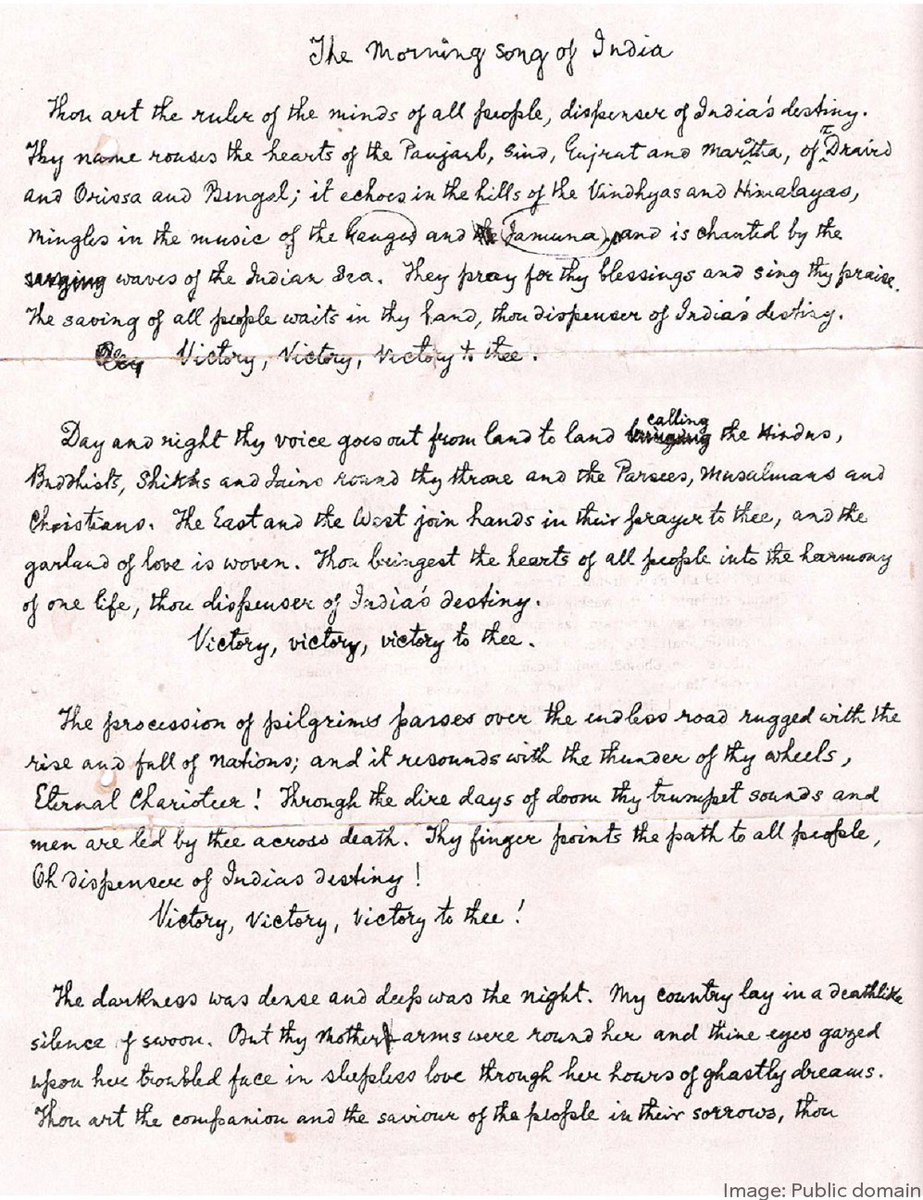 The Morning song of India
Thou art the ruler of the minds of all people, dispenser of India's destiny.
Thy name rouses the hearts of the Panjaub, Sind, Gujrat and Maratha, of Dravid
and Orissa and Bengal; it echoes in the hills of the Vindhyas and Himalayas,
mingles in the music of the Ganges and Jamuna and is chanted by the
waves of the Indian Sea. They pray for thy blessings and sing thy praise.
The saving of all people waits in thy hand, thou dispenser of India's destiny.
Victory, Victory, Victory to thee.
Day and night thy voice goes out from land to land calling the Hindus,
Buddhists, Shikhs and Jains round thy throne and the Parsees, Musalmans and
Christians. The East and the West join hands in their prayer to thee, and the
garland of love is woven. Thou bringest the hearts of all people into the harmony
of one life, thou dispenser of India's destiny.
Victory, victory, victory to thee.
The procession of pilgrims passes over the endless road rugged with the
rise and fall of nations; and it resounds with the thunder of thy wheels,
Eternal Charioteer! Through the dire days of doom thy trumpet sounds and
men are led by thee across death. Thy finger points the path to all people,
Oh dispenser of Indias destiny!
Victory, Victory, Victory to thee!
The darkness was dense and deep was the night. My country lay in a deathlike
silence of swoon. But thy Mother arms were round her and thine eyes gazed
upon her troubled face in sleepless love through her hours of ghastly dreams.
Thou art the companion and the saviour of the people in their sorrows, thou
Image: Public domain